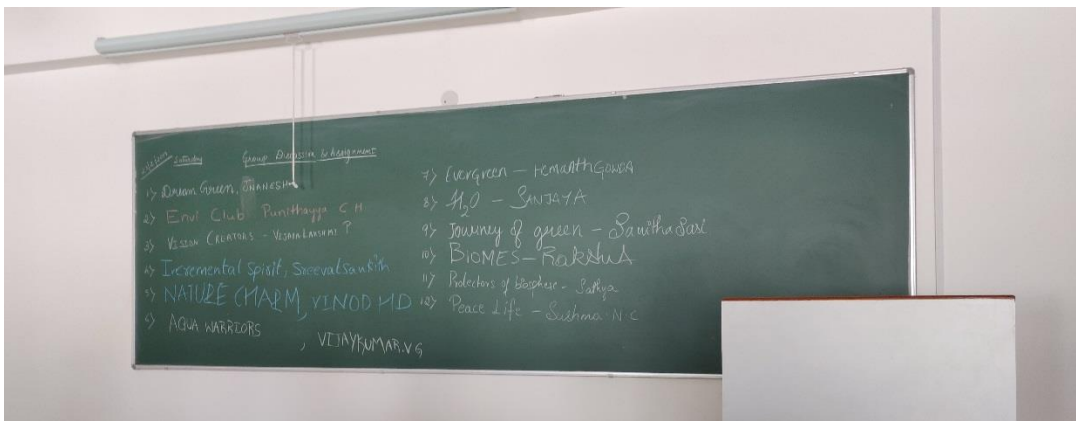 Saturday Group Discussion & Assignment
1) Dream Green, DHANESH
2) Envi Club Punithayya C H
3) VISION CREATORS - VIJAYA LAKSHMI ?
4) Incremental Spirit, Sreevalsankith
5) NATURE CHARM, VINOD HD
6) AQUA WARRIORS , VIJAYKUMAR.VG
7) Evergreen - HemanthGowda
8) H2O - SANJAYA
9) Journey of green - Sanitha Sasi
10) BIOMES - Rakshit
11) Protectors of biosphere - Sathya
12) Peace Life - Sushma N.C